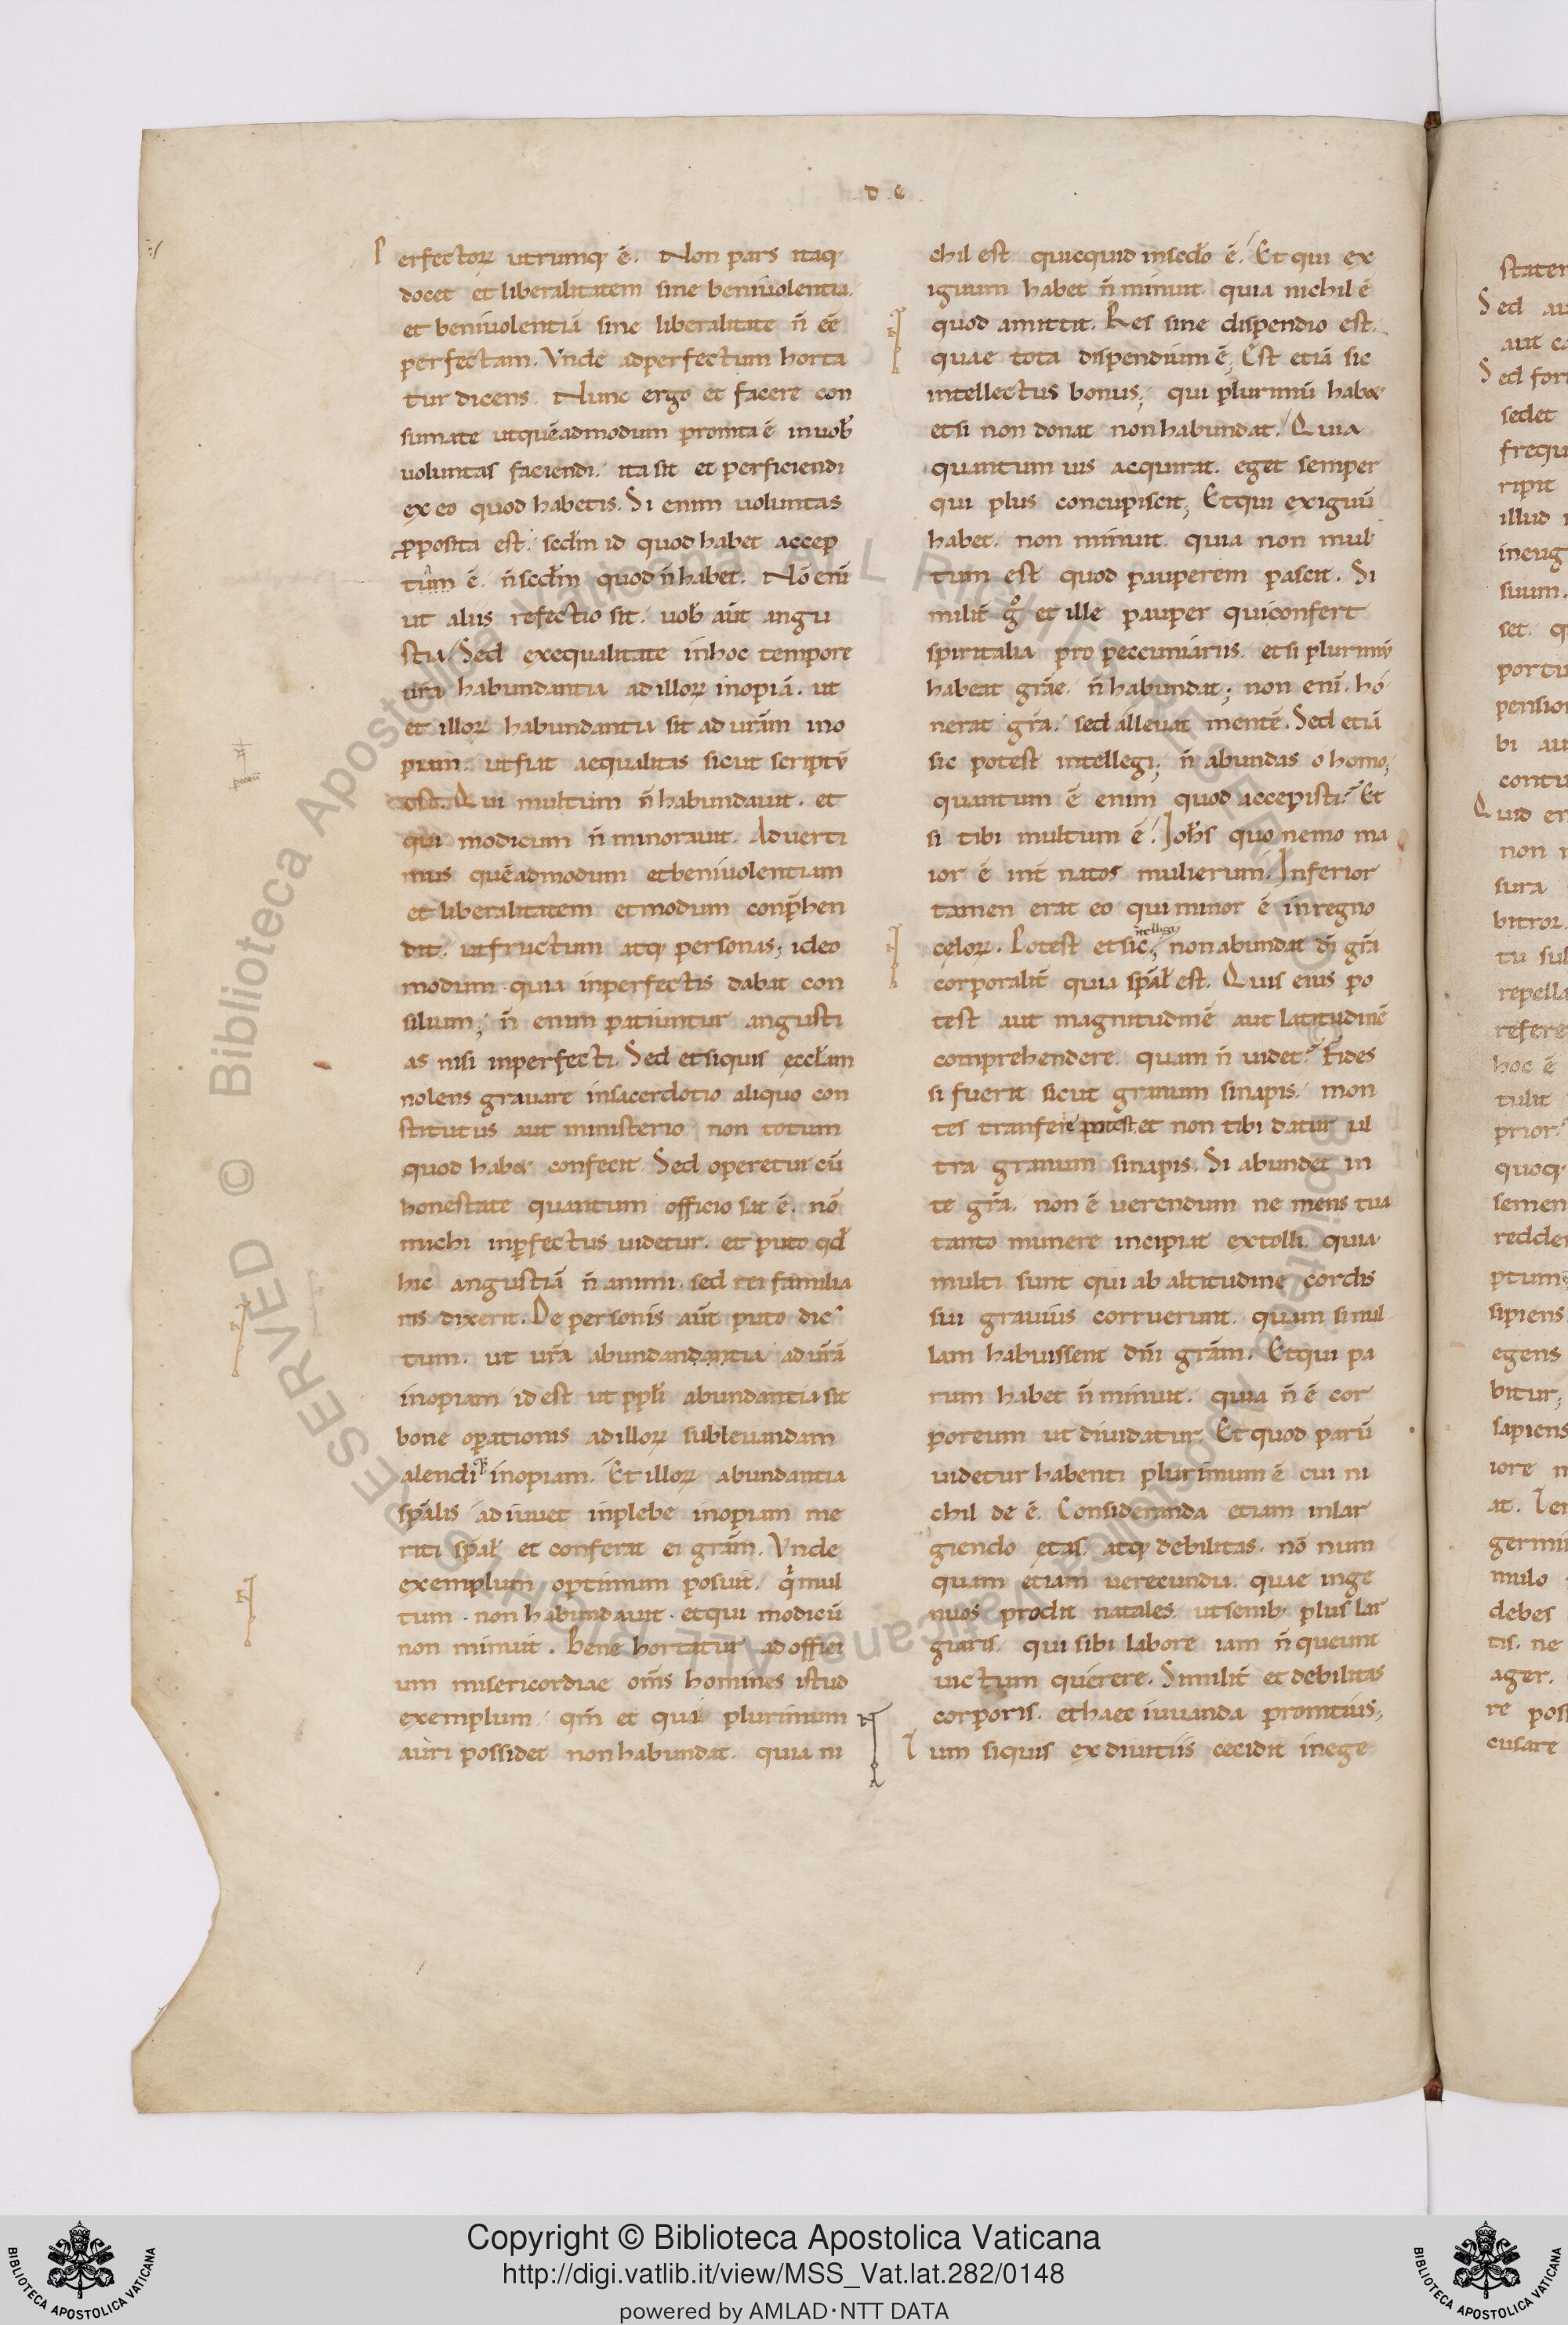 d e
Perfectoꝝ utrumq; ē. Non pars itaq;
docet et liberalitatem sine beniuolentia.
et beniuolentiā sine liberalitate ñ eē
perfectam. Vnde adperfectum horta
tur dicens. Nunc ergo et facere con
sumate utquēadmodum promta ē inuob̄
uoluntas faciendi. ita sit et perficiendi
ex eo quod habetis. Si enim uoluntas
ꝓposita est. secd̄m id quod habet accep
tum ē. ñ secd̄m quod ñ habet. Nō enī
ut aliis refectio sit. uob̄ aūt angu
stia. Sed exequalitate inhoc tempore
ur̄a habundantia ad illoꝝ inopiā. ut
et illoꝝ habundantia sit ad urām ino
piam. ut fiat aequalitas sicut scriptū
est. Qui multum ñ habundauit. et
qui modicum ñ minorauit. Aduerti
mus quēadmodum et beniuolentiam
et liberalitatem et modum conp̄hen
dit. ut fructum atq; personas; ideo
modum quia inperfectis dabat con
silium; ñ enim patiuntur angusti
as nisi inperfecti. Sed et siquis ęccl̄am
nolens grauare insacerdotio aliquo con
stitutus aut ministerio non totum
quod habet conferat. Sed operetur cū
honestate quantum officio sat ē. nō
michi inp̄fectus uidetur. et puto qd̄
hic angustiā ñ animi. sed rei familia
ris dixerit. De personis aūt puto dic
tum. ut ur̄a abundandantia ad urā
inopiam id est ut ppl̄i abundantia sit
bone oꝑationis ad illoꝝ subleuandam
alendi inopiam. Et illoꝝ abundantia
sp̄alis adiuuet inplebe inopiam me
riti sp̄al̄ et conferat ei grām. Vnde
exemplum optimum posuit. q̄ mul
tum. non habundauit. et qui modicū
non minuit. Bene hortatur ad offici
um misericordiae om̄s homines istud
exemplum. qm̄ et qui plurimum
auri possidet non habundat. quia ni
chil est quicquid insecl̄o ē. Et qui ex
iguum habet ñ minuit. quia nichil ē
quod amittit. Res sine dispendio est.
quae tota dispendium ē; Est etiā sic
intellectus bonus; qui plurimū habet
etsi non donat non habundat. Quia
quantum uis acquirat. eget semper
qui plus concupiscit; Et qui exiguū
habet. non minuit. quia non mul
tum est quod pauperem pascit. Si
milit̄ g° et ille pauper qui confert
spiritalia pro peccuniariis. etsi plurimū
habeat grāe. ñ habundat; non enī. ho
nerat grā. sed alleuat mentē. Sed etiā
sic potest intellegi; ñ abundas o homo;
quantum ē enim quod accepisti? Et
si tibi multum ē. Ioh̄s quo nemo ma
ior ē int̄ natos mulierum. Inferior
tamen erat eo qui minor ē in regno
cęloꝝ. Potest et sic; non abundat dī grā
corporalit̄ quia sp̄al̄ est. Quis eius po
test aut magnitudinē aut latitudinē
comprehendere. quam ñ uidet? Fides
si fuerit sicut granum sinapis. mon
tes tranferre potest. et non tibi datur ul
tra granum sinapis. Si abundet in
te gr̄a. non ē uerendum ne mens tua
tanto munere incipiat extolli. quia
multi sunt qui ab altitudine cordis
sui grauius corruerunt. quam si nul
lam habuissent dn̄i grām. Et qui pa
rum habet ñ minuit. quia ñ ē cor
poreum ut diuidatur. Et quod parū
uidetur habenti plurimum ē cui ni
chil de ē. Consideranda etiam inlar
giendo ętas. atq; debilitas. nō num
quam etiam uerecundia. quae inge
nuos prodit natales. ut senib; plus lar
giaris. qui sibi labore iam ñ queunt
uictum querere. Similit̄ et debilitas
corporis. et haec iuuanda promtius;
Tum siquis ex diuitiis cecidit inege
Copyright © Biblioteca Apostolica Vaticana
http://digi.vatlib.it/view/MSS_Vat.lat.282/0148
powered by AMLAD·NTT DATA
BIBLIOTECA APOSTOLICA VATICANA
BIBLIOTECA APOSTOLICA VATICANA